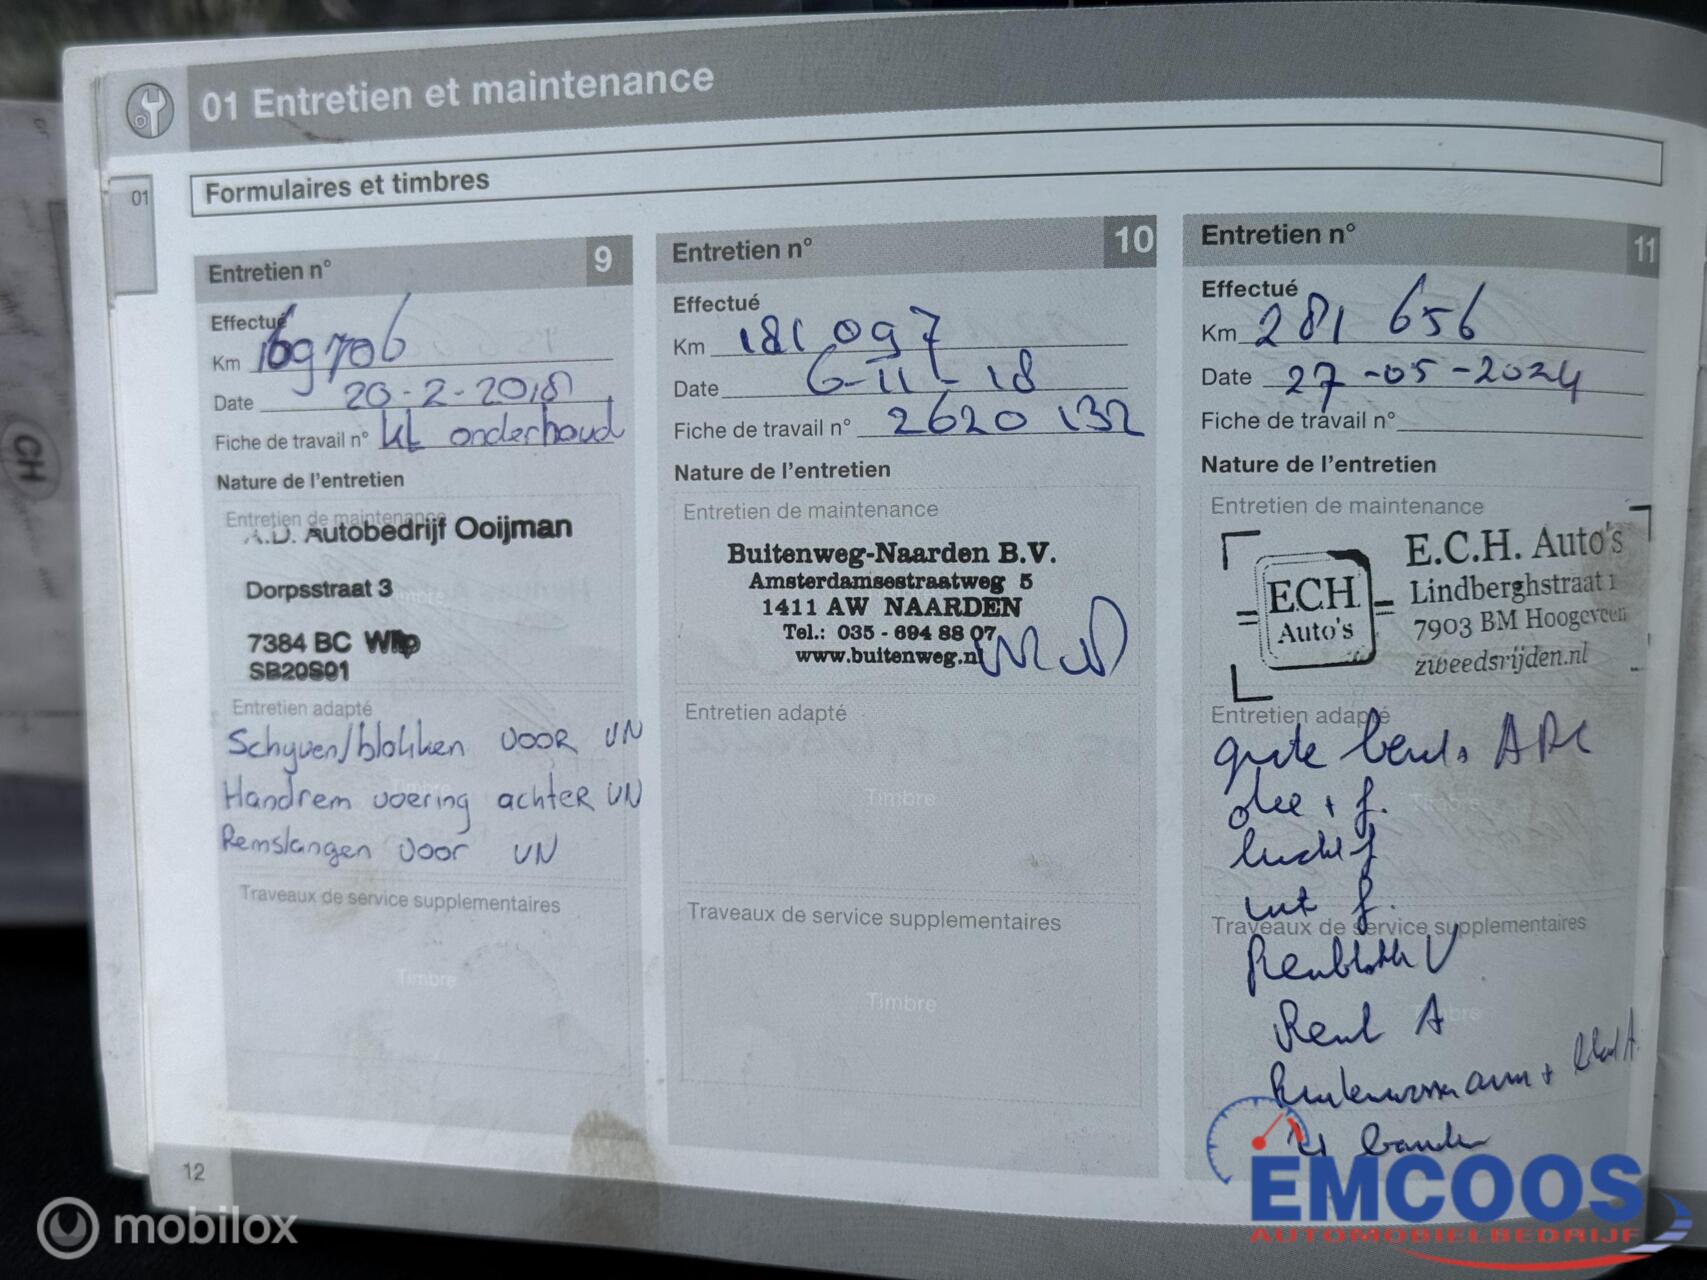 01 Entretien et maintenance
01
Formulaires et timbres
Entretien n° 9
Effectué
Km 169706
Date 20-2-2018
Fiche de travail n° kl onderhoud
Nature de l'entretien
Entretien de maintenance
A.D. Autobedrijf Ooijman
Dorpsstraat 3
7384 BC Wilp
SB20S01
Entretien adapté
Schyven/blokken voor VN
Handrem voering achter VN
Remslangen voor VN
Traveaux de service supplementaires
Timbre
Entretien n° 10
Effectué
Km 181 097
Date 6-11-18
Fiche de travail n° 2620 132
Nature de l'entretien
Entretien de maintenance
Buitenweg-Naarden B.V.
Amsterdamsestraatweg 5
1411 AW NAARDEN
Tel.: 035 - 694 88 07
www.buitenweg.nl
Entretien adapté
Timbre
Traveaux de service supplementaires
Timbre
Entretien n° 11
Effectué
Km 281 656
Date 27-05-2024
Fiche de travail n°
Nature de l'entretien
Entretien de maintenance
ECH
Auto's
E.C.H. Auto's
Lindberghstraat 1
7903 BM Hoogeveen
zweedsrijden.nl
Entretien adapté
grote beurt
olie + f.
lucht f
int f.
Traveaux de service supplementaires
Remblokken V
A
4 banden
12
CH
mobilox
EMCOOS
AUTOMOBIELBEDRIJF